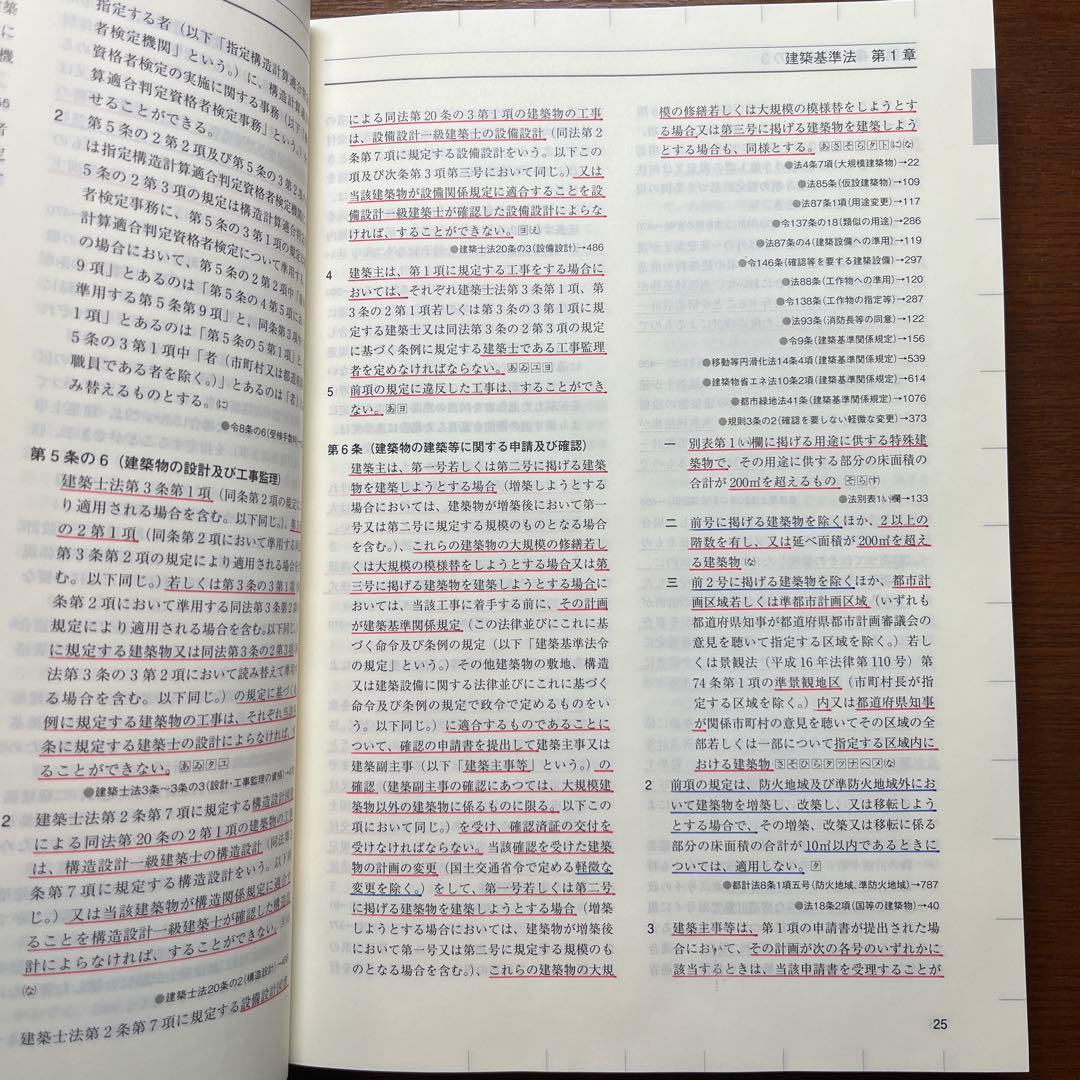 指定する者（以下「指定構造計算適合
者検定機関」という。）に、構造計算適
資格者検定の実施に関する事務（以下「構
算適合判定資格者検定事務」という。）を
せることができる。
2 第5条の2第2項及び第5条の3第2項の
は指定構造計算適合判定資格者検定機関に
5条の2第3項の規定は構造計算適合
者検定事務に、第5条の3第1項の規定は
計算適合判定資格者検定について準用する
の場合において、第5条の2第2項中「前
9項」とあるのは「第5条の4第5項にお
準用する第5条第9項」と、同条第3項中
1項」とあるのは「第5条の5第1項」と、
5条の3第1項中「者（市町村又は都道府
職員である者を除く。）」とあるのは「者」と
み替えるものとする。(に)
●令8条の6(受検手数料)→
第5条の6（建築物の設計及び工事監理）
建築士法第3条第1項（同条第2項の規定に
り適用される場合を含む。以下同じ。）、第3
の2第1項（同条第2項において準用する同
第3条第2項の規定により適用される場合を
む。以下同じ。）若しくは第3条の3第1項（
条第2項において準用する同法第3条第2項
規定により適用される場合を含む。以下同じ。）
に規定する建築物又は同法第3条の2第3項（
法第3条の3第2項において読み替えて準用す
る場合を含む。以下同じ。）の規定に基づく
例に規定する建築物の工事は、それぞれ当該
条に規定する建築士の設計によらなければ、
ることができない。あゐタユ
●建築士法3条～3条の3(設計・工事監理の資格)→
2 建築士法第2条第7項に規定する構造設計図書
による同法第20条の2第1項の建築物の工
は、構造設計一級建築士の構造設計（同法第2
条第7項に規定する構造設計をいう。以下
じ。）又は当該建築物が構造関係規定に適合す
ることを構造設計一級建築士が確認した構造設
計によらなければ、することができない。
(な)
●建築士法20条の2(構造設計)→486
建築士法第2条第7項に規定する設備設計図書
建築基準法　第1章
による同法第20条の3第1項の建築物の工事
は、設備設計一級建築士の設備設計（同法第2
条第7項に規定する設備設計をいう。以下この
項及び次条第3項第三号において同じ。）又は
当該建築物が設備関係規定に適合することを設
備設計一級建築士が確認した設備設計によらな
ければ、することができない。ヨ(え)
●建築士法20条の3(設備設計)→486
4 建築主は、第1項に規定する工事をする場合に
おいては、それぞれ建築士法第3条第1項、第
3条の2第1項若しくは第3条の3第1項に規
定する建築士又は同法第3条の2第3項の規定
に基づく条例に規定する建築士である工事監理
者を定めなければならない。あゐユヨ
5 前項の規定に違反した工事は、することができ
ない。あヨ
第6条（建築物の建築等に関する申請及び確認）
建築主は、第一号若しくは第二号に掲げる建築
物を建築しようとする場合（増築しようとする
場合においては、建築物が増築後において第一
号又は第二号に規定する規模のものとなる場合
を含む。）、これらの建築物の大規模の修繕若し
くは大規模の模様替をしようとする場合又は第
三号に掲げる建築物を建築しようとする場合に
おいては、当該工事に着手する前に、その計画
が建築基準関係規定（この法律並びにこれに基
づく命令及び条例の規定（以下「建築基準法令
の規定」という。）その他建築物の敷地、構造
又は建築設備に関する法律並びにこれに基づく
命令及び条例の規定で政令で定めるものをい
う。以下同じ。）に適合するものであることに
ついて、確認の申請書を提出して建築主事又は
建築副主事（以下「建築主事等」という。）の
確認（建築副主事の確認にあつては、大規模建
築物以外の建築物に係るものに限る。以下この
項において同じ。）を受け、確認済証の交付を
受けなければならない。当該確認を受けた建築
物の計画の変更（国土交通省令で定める軽微な
変更を除く。）をして、第一号若しくは第二号
に掲げる建築物を建築しようとする場合（増築
しようとする場合においては、建築物が増築後
において第一号又は第二号に規定する規模のも
のとなる場合を含む。）、これらの建築物の大規
模の修繕若しくは大規模の模様替をしようとす
る場合又は第三号に掲げる建築物を建築しよう
とする場合も、同様とする。あさそらタトに(な)
●法4条7項(大規模建築物)→22
●法85条(仮設建築物)→109
●法87条1項(用途変更)→117
●令137条の18(類似の用途)→286
●法87条の4(建築設備への準用)→119
●令146条(確認等を要する建築設備)→297
●法88条(工作物への準用)→120
●令138条(工作物の指定等)→287
●法93条(消防長等の同意)→122
●令9条(建築基準関係規定)→156
●移動等円滑化法14条4項(建築基準関係規定)→539
●建築物省エネ法10条2項(建築基準関係規定)→614
●都市緑地法41条(建築基準関係規定)→1076
●規則3条の2(確認を要しない軽微な変更)→373
一 別表第1(い)欄に掲げる用途に供する特殊建
築物で、その用途に供する部分の床面積の
合計が200㎡を超えるもの そら(す)
●法別表1い欄→133
二 前号に掲げる建築物を除くほか、2以上の
階数を有し、又は延べ面積が200㎡を超え
る建築物 (な)
三 前2号に掲げる建築物を除くほか、都市計
画区域若しくは準都市計画区域（いずれも
都道府県知事が都道府県都市計画審議会の
意見を聴いて指定する区域を除く。）若し
くは景観法（平成16年法律第110号）第
74条第1項の準景観地区（市町村長が指
定する区域を除く。）内又は都道府県知事
が関係市町村の意見を聴いてその区域の全
部若しくは一部について指定する区域内に
おける建築物 さそひらタツナヘメ(な)
2 前項の規定は、防火地域及び準防火地域外にお
いて建築物を増築し、改築し、又は移転しよう
とする場合で、その増築、改築又は移転に係る
部分の床面積の合計が10㎡以内であるときに
ついては、適用しない。タ
●都計法8条1項五号(防火地域、準防火地域)→787
●法18条2項(国等の建築物)→40
3 建築主事等は、第1項の申請書が提出された場
合において、その計画が次の各号のいずれかに
該当するときは、当該申請書を受理することが
25